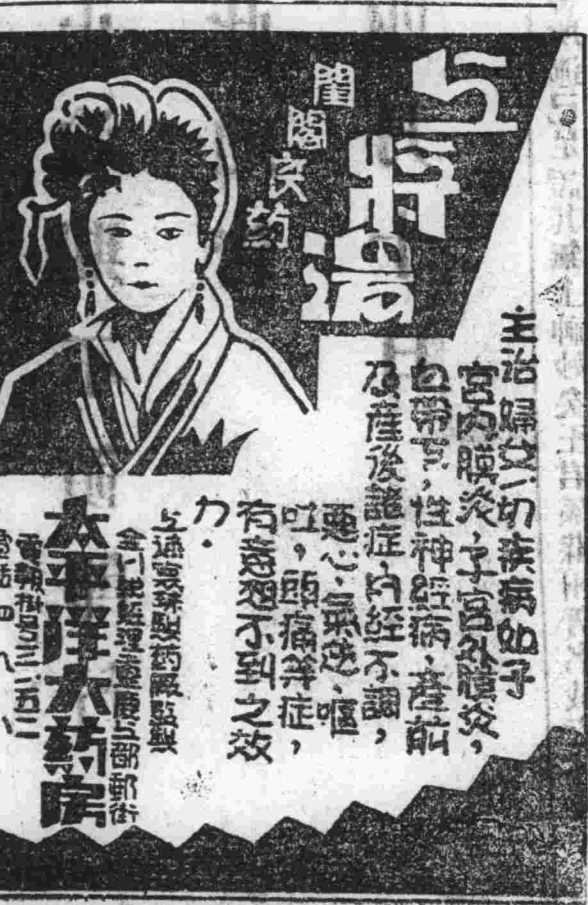 上将湯
閨閣良葯
主治婦女一切疾病如子
宮内膜炎，子宮外膜炎，
白帶下，性神經病，產前
及產後諸症，月经不調，
惡心，氣逆，嘔
吐，頭痛等症，
有意想不到之效
力．
製药厰監製
全川總經理處重庆上都郵街
太平洋大药房
電報掛号三一五二
電話